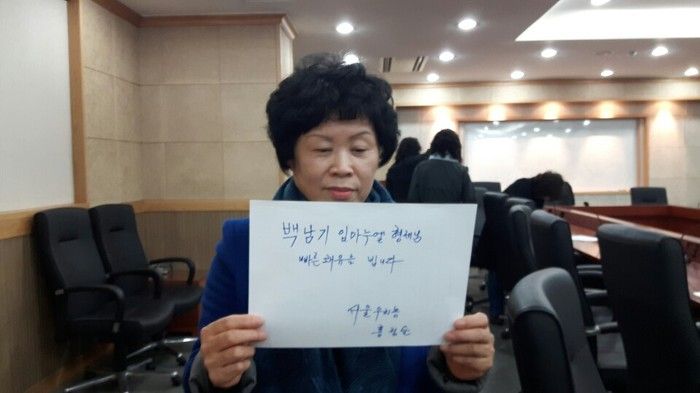 백남기 임마누엘 형제님
빠른 쾌유를 빕니다
서울우리농
홍